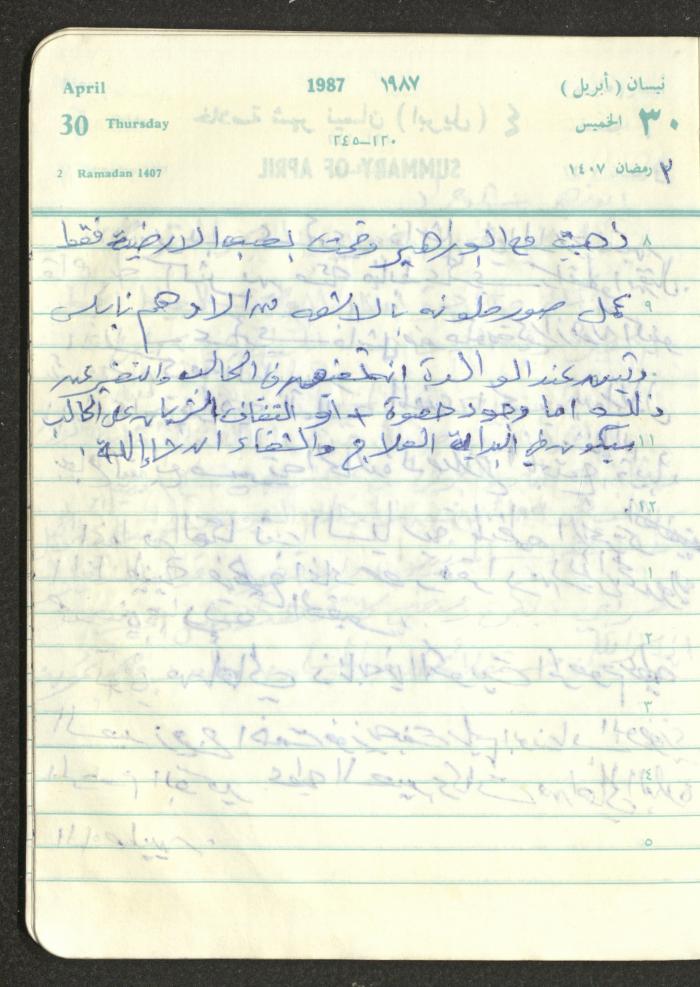 April 1987 ١٩٨٧ نيسان (أبريل)
30 Thursday ٣٠ الخميس
١٢٠-٢٤٥
2 Ramadan 1407 ٢ رمضان ١٤٠٧
٨ ذهبت مع ابو ابراهيم وقمت بصب الارضية فقط
٩ عمل صور ملونه بالاشعه الادهم نابلس
وتبين عند الوالدة في الحالب
ذلك اما وجود حصوة + او التفاف الشريان على الحالب
١١ سيكون في البداية العلاج والشفاء ان شاء الله.
١٢
١
٢
٣
٤
٥